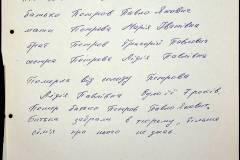 батько Петров Павло Якович
мати Петрова Марія Іванівна
брат Петров Григорій Павлович
сестра Петрова Лідія Павлівна
Померла від голоду Петрова
Лідія Павлівна 7 років,
Помер батько Петров Павло Якович,
батька забрали в тюрьму, більше
сім'я про нього не знає.